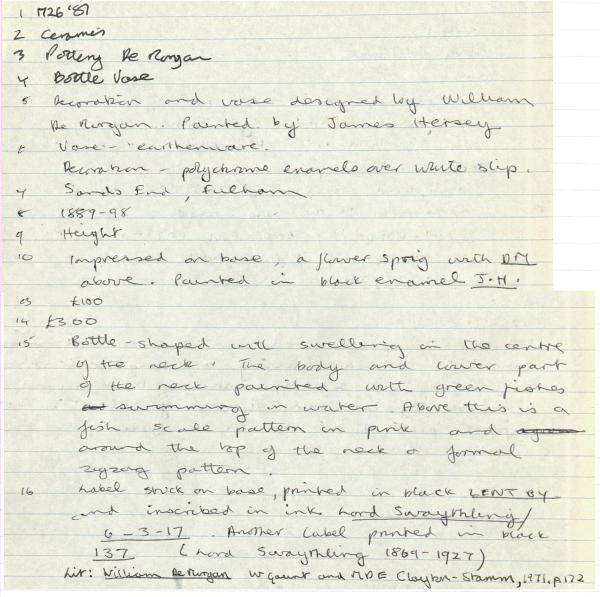 1 M26'87
2 Ceramics
3 Pottery De Morgan
4 Bottle Vase
5 Decoration and vase designed by William
De Morgan. Painted by James Hersey
6 Vase - earthenware.
Decoration - polychrome enamels over white slip.
7 Sands End, Fulham
8 1889-98
9 Height
10 Impressed on base, a flower sprig with DM
above. Painted in black enamel J.H.
13 £100
14 £300
15 Bottle-shaped with swelling in the centre
of the neck. The body and lower part
of the neck painted with green fishes
swimming in water. Above this is a
fish scale pattern in pink and
around the top of the neck a formal
zigzag pattern.
16 Label stuck on base, printed in black LENT BY
and inscribed in ink Lord Swaythling/
6-3-17. Another label printed in black
137 (Lord Swaythling 1869-1927)
Lit: William De Morgan W Gaunt and MDE Clayton-Stamm, 1971, p172